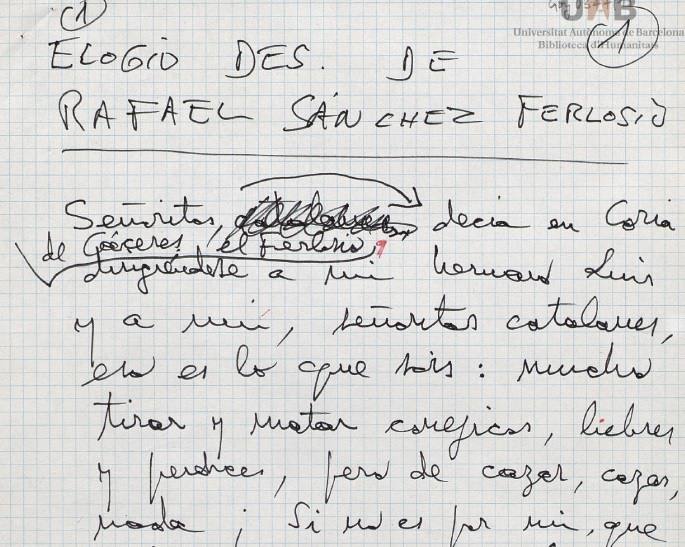 1
UAB
Universitat Autònoma de Barcelona
Biblioteca d'Humanitats
1
ELOGIO DES. DE
RAFAEL SÁNCHEZ FERLOSIO
Señoritos, decía en Coria
de Cáceres, el Ferlosio,
dirigiéndose a mi hermano Luis
y a mí, señoritos catalanes,
eso es lo que sois: mucho
tirar y matar conejicos, liebres
y perdices, pero de cazar, cazar,
nada; Si no es por mí, que